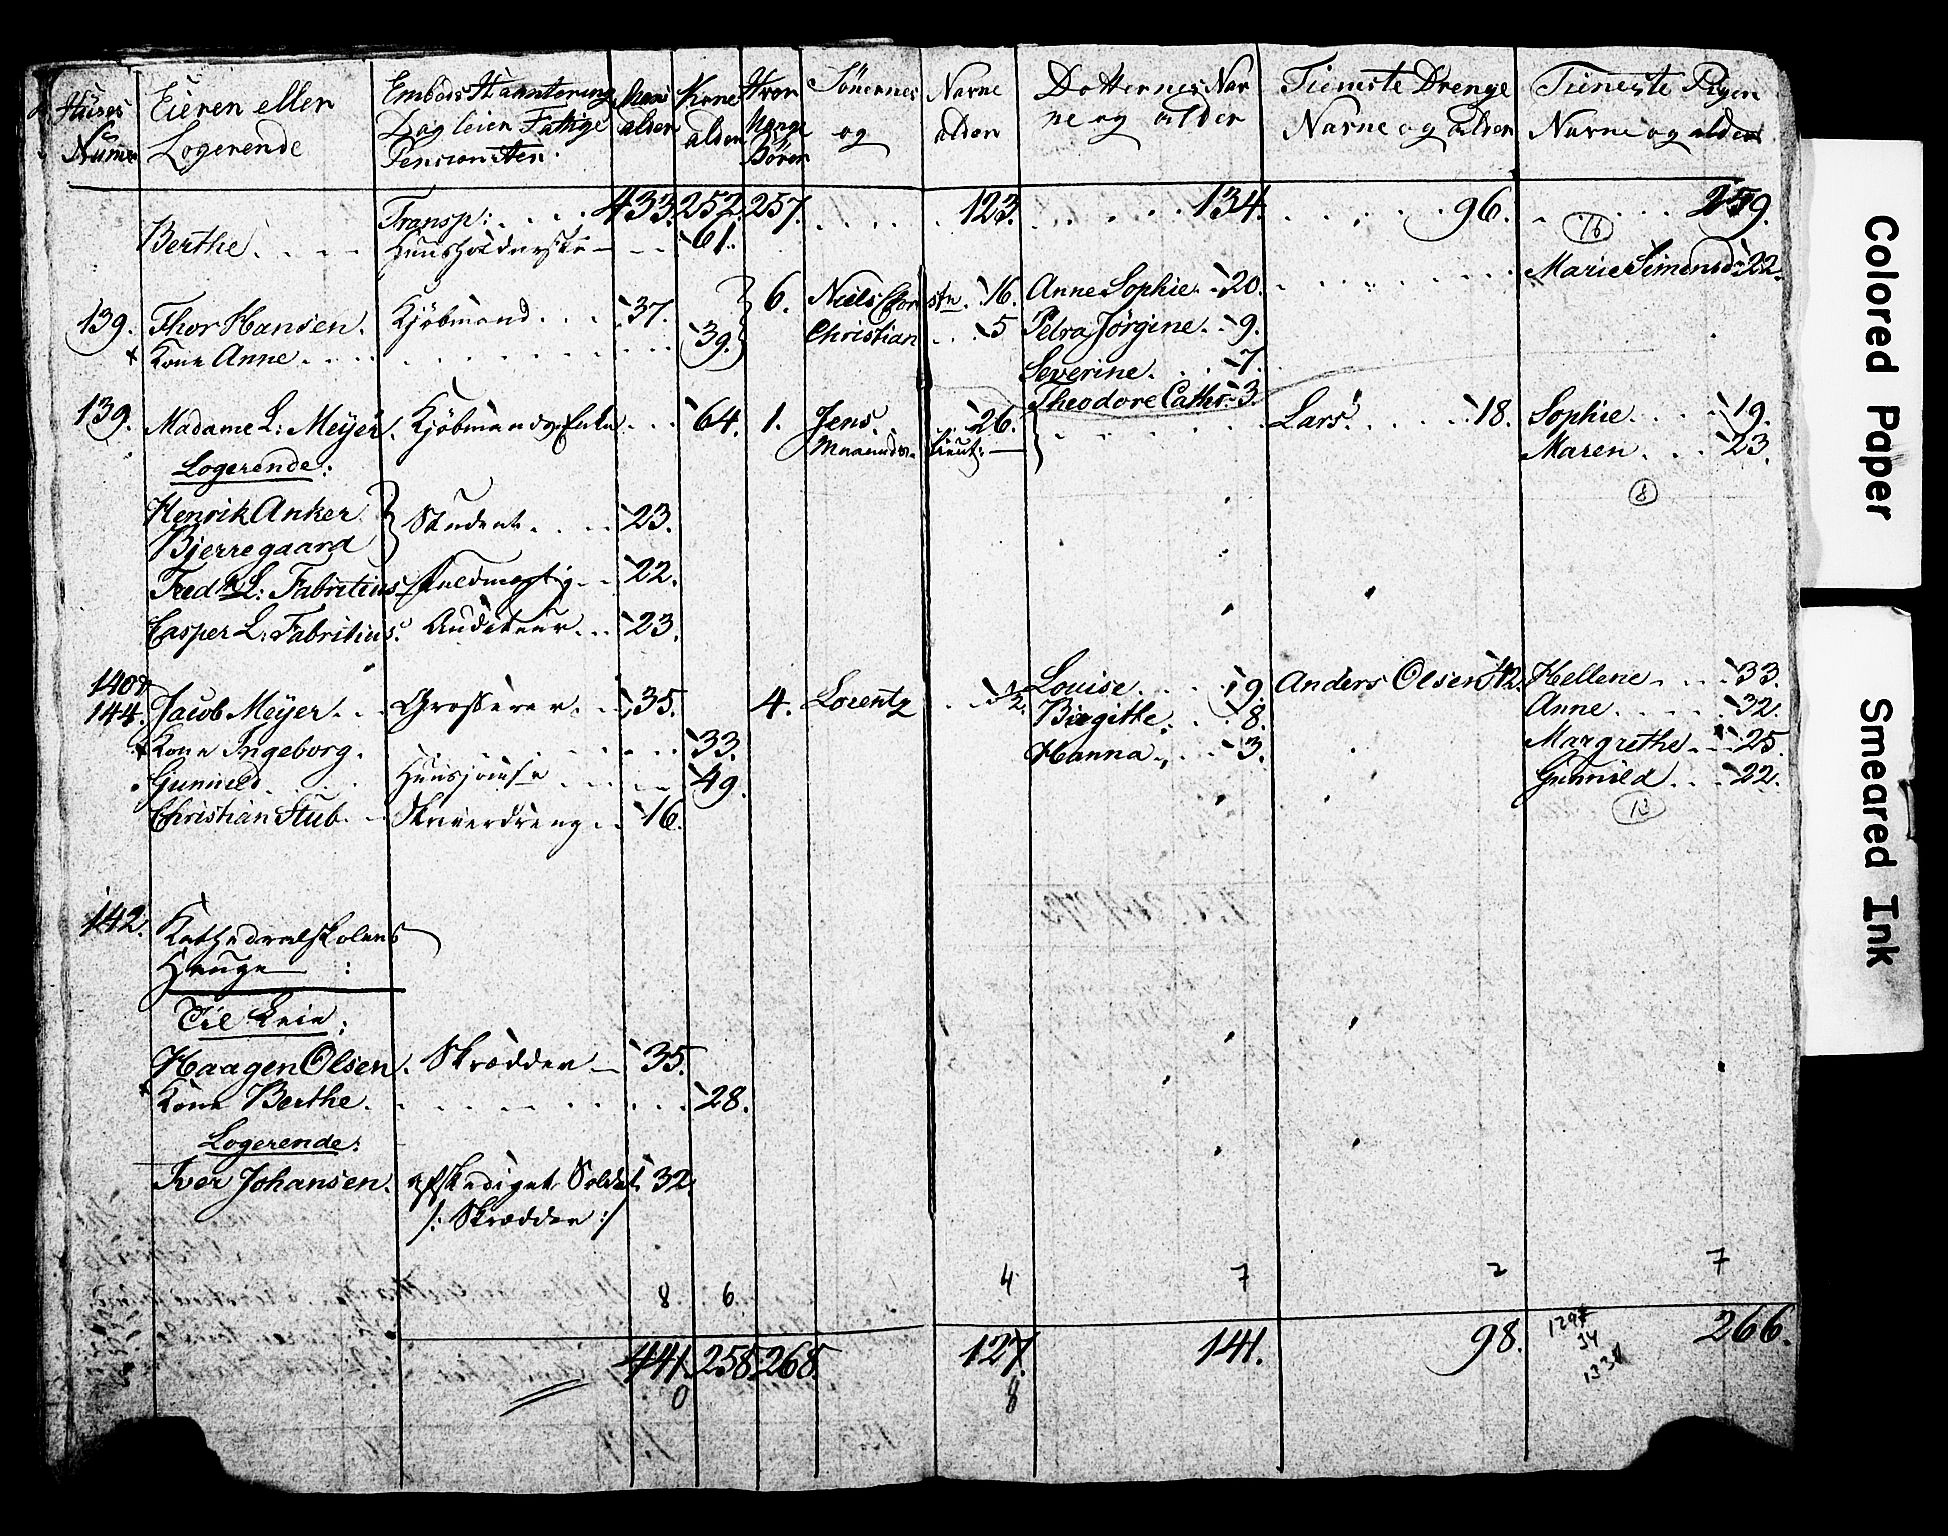 Huses Eieren eller Embeds Haantering Mænd Kone Hvor Sönernes Navne Dötternes Nav Tieneste Drenge Tieneste Piger
Numr Logerende Dagleier Fattige alder alder Mange og alder ne og alder Navne og alder Navne og alder
Pensionister. Börn
Transp: 433. 252. 257. 123. 134. 96. 259.
Berthe. Huusholderske 61. 16
Marie Simensd: 22.
139. Thor Hansen. Kjöbmand. 37. 6. Niels Chorstn. 16. Anne Sophie. 20.
Kone Anne. 39. Christian 5 Petra Jörgine. 9.
Severine. 7.
Theodore Cath: 3.
139. Madame L: Meyer. Kjöbmands Enke. 64. 1. Jens. 26. Lars. 18. Sophie. 19.
Logerende: Maaneds- Lieut: Maren. 23.
8
Henrik Anker
Bjerregaard Student. 23.
Fredk L: Fabritius. Fuldmegtig. 22.
Casper L: Fabritius. Auditeur. 23.
140 &
144. Jacob Meyer. Grosserer. 35. 4. Lorentz 1/2. Louise. 9. Anders Olsen 42. Hellene. 33.
Birgitte. 8. Anne. 32.
Kone Ingeborg. 33. Hanna. 3. Margrethe 25.
Gunnild. Huusjomfr 49. Gunnild 22.
Christian Stub. Skriverdreng. 16. 13
142. Kathedralskolens
Hauge :
Til Leie:
Haagen Olsen. Skrædder 35.
Kone Berthe. 28.
Logerende:
Iver Johansen. afskediget Soldat. 32.
/: Skrædder :/
8 6 4 7 2 7
441. 258. 268. 127. 141. 98. 266.
0 8
1297
34
1331
Colored Paper
Smeared Ink